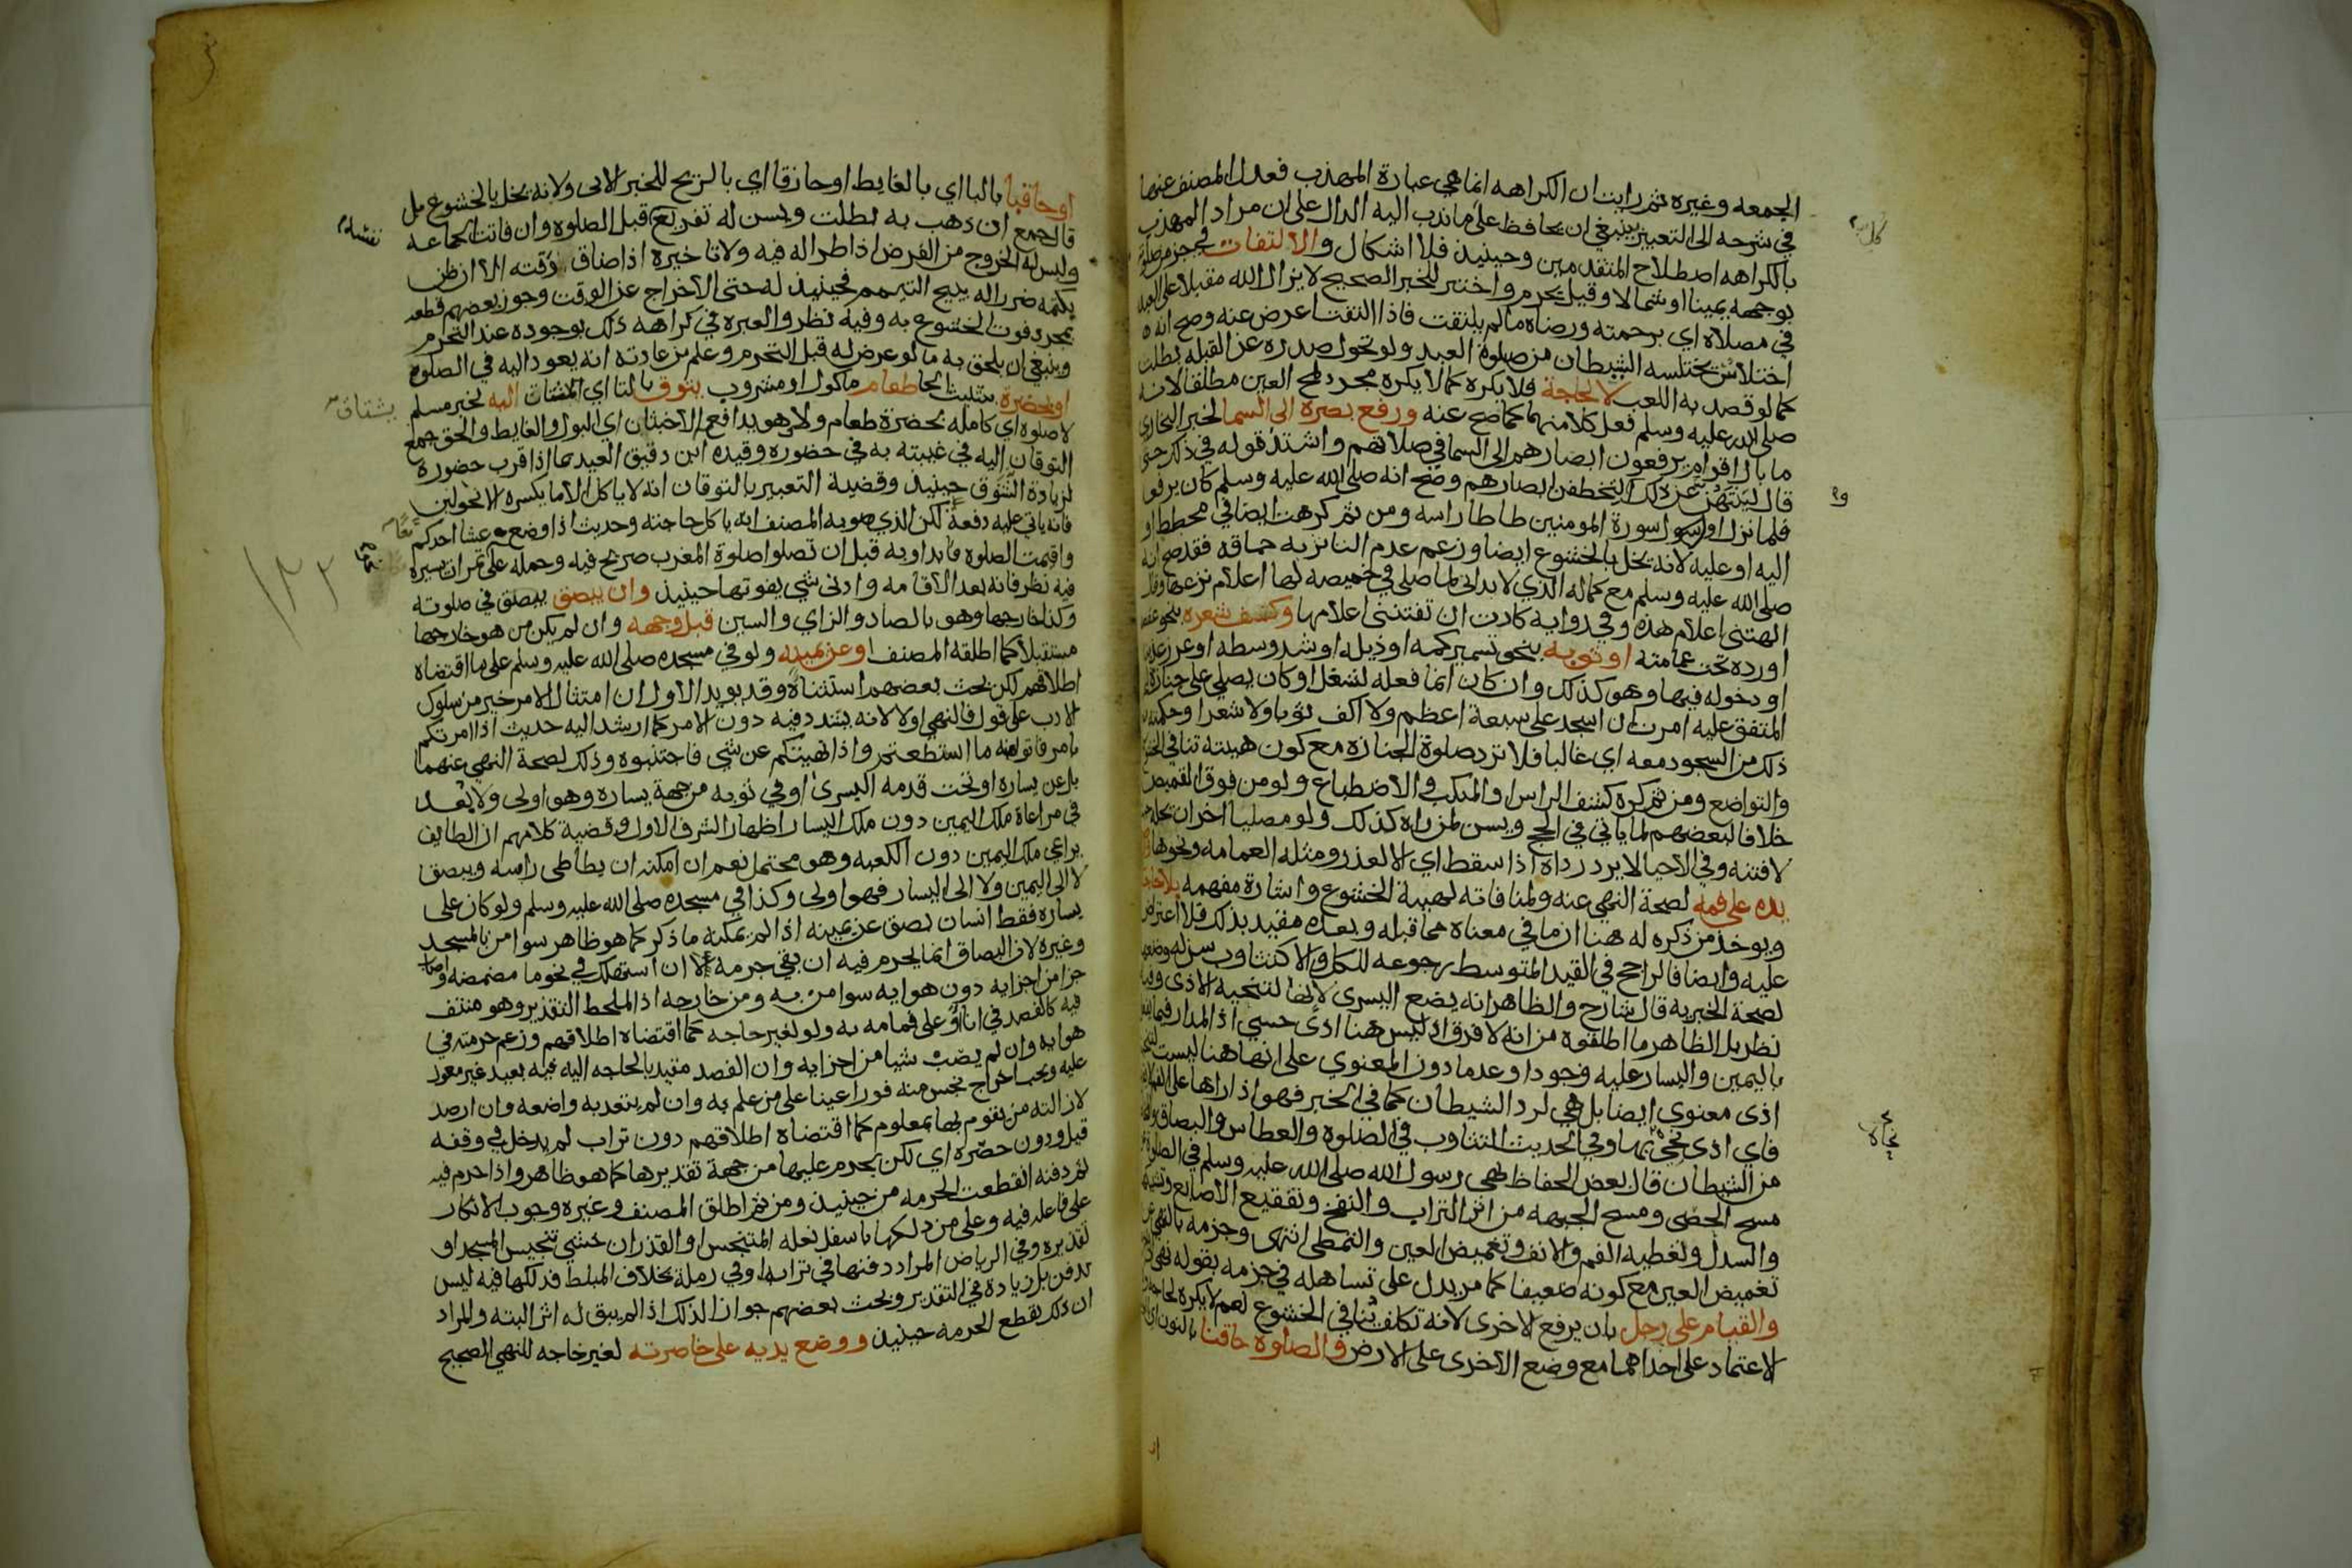 الجمعه وغيره ثم رايت ان الكراهه انما هي عبارة المهذب فعدل المصنف عنها
في شرحه الى التعبير بينبغي ان يحافظ على ما ندب اليه الدال على ان مراد المهذب
بالكراهه اصطلاح المتقدمين وحينيذ فلا اشكال والالتفات في جزء من صلاته
بوجهه يمينا او شمالا وقيل يحرم واختير للخبر الصحيح لا يزال الله مقبلا على العبد
في مصلاه اي برحمته ورضاه ما لم يلتفت فاذا التفت اعرض عنه وصح انه
اختلاس يختلسه الشيطان من صلوة العبد ولو تحول صدره عن القبله بطلت
كما لو قصد به اللعب لا لحاجة فلا يكره كما لا يكره مجرد لمح العين مطلقا لانه
صلى الله عليه وسلم فعل كلا منهما كما صح عنه ورفع بصره الى السما لخبر البخاري
ما بال اقوام يرفعون ابصارهم الى السما في صلاتهم واشتد قوله في ذلك حتى
قال لينتهن عن ذلك او لتخطفن ابصارهم وصح انه صلى الله عليه وسلم كان يرفع
فلما نزل اول سورة المومنين طاطا راسه ومن ثم كرهت ايضا في مخطط او
اليه او عليه لانه يخل بالخشوع ايضا وزعم عدم التاثر به حماقه فقد صح انه
صلى الله عليه وسلم مع كماله الذي لا يدانى لما صلى في خميصه لها اعلام نزعها وقال
الهتني اعلام هذه وفي روايه كادت ان تفتنني اعلامها وكف شعره بنحو عقصه
او رده تحت عمامته او ثوبه بنحو تشمير كمه او ذيله او شد وسطه او غرز عذبه
او دخوله فيها وهو كذلك وان كان انما فعله لشغل او كان يصلي على جنازة
المتفق عليه امرت ان اسجد على سبعة اعظم ولا اكف ثوبا ولا شعرا وحكمته
ذلك من السجود معه اي غالبا فلا ترد صلوة الجنازه مع كون هيئته تنافي الخشوع
والتواضع ومن ثم كره كشف الراس او المنكب والاضطباع ولو من فوق القميص
خلافا لبعضهم لما ياتي في الحج ويسن لمن راه كذلك ولو مصليا اخر ان يحله حيث
لا فتنه وفي الاحيا لا يرد رداه اذا سقط اي الا لعذر ومثله العمامه ونحوها
يده على فمه لصحة النهي عنه ولمنافاته لهيئة الخشوع واشارة مفهمه بلا حاجة
ويوخذ من ذكره له هنا ان ما في معناه مما قبله وبعده مقيد بذلك فلا اعتراض
عليه وايضا فالراجح في القيد المتوسط رجوعه للكل والا كتثاوب سن له وضعها
لصحة الخبر به قال شارح والظاهر انه يضع اليسرى لانها لتنحية الاذى وفيه
نظر بل الظاهر ما اطلقوه من انه لا فرق اذ ليس هنا اذى حسي اذ المدار فيما
باليمين واليسار عليه وجودا وعدما دون المعنوي على انها هنا ليست لتنحية
اذى معنوي ايضا بل هي لرد الشيطان كما في الخبر فهو اذا راها على الفم لا
فاي اذى نحي بها وفي الحديث التثاوب في الصلوة والعطاس والبصاق
من الشيطان قال بعض الحفاظ نهى رسول الله صلى الله عليه وسلم في الصلوة
مسح الحصى ومسح الجبهه من اثر التراب والنفخ وتفقيع الاصابع وتشبيكها
والسدل وتغطيه الفم والانف وتغميض العين والتمطي انتهى وجزمه بالنهي عن
تغميض العين مع كونه ضعيفا كما مر يدل على تساهله في جزمه بقوله نهى
والقيام على رجل بان يرفع الاخرى لانه تكلف ينافي الخشوع نعم لا يكره لحاجه
لاعتماد على احداهما مع وضع الاخرى على الارض والصلوة حاقنا بالنون اي
او حاقبا بالبا اي بالغايط او حازقا اي بالريح للخبر الاتي ولانه يخل بالخشوع بل
قال جمع ان ذهب به بطلت ويسن له تفريغ نفسه قبل الصلوة وان فاتت الجماعه
وليس له الخروج من الفرض اذا طرا له فيه ولا تاخيره اذا ضاق وقته الا ان ظن
بكتمه ضررا له يبيح التيمم فحينيذ له حتى الاخراج عن الوقت وجوز بعضهم قطعه
بمجرد فوت الخشوع به وفيه نظر والعبره في كراهه ذلك بوجوده عند التحرم
وينبغي ان يلحق به ما لو عرض له قبل التحرم وعلم من عادته انه يعود اليه في الصلوة
او بحضرة بتثليث الحا طعام ماكول او مشروب يتوق بالتا اي يشتاق اليه لخبر مسلم
لا صلوة اي كامله بحضرة طعام ولا وهو يدافعه الاخبثان اي البول والغايط والحق جمع
التوقان اليه في غيبته به في حضوره وقيده ابن دقيق العيد بما اذا قرب حضوره
لزيادة التشوق حينيذ وقضية التعبير بالتوقان انه لا ياكل الا ما يكسره الا نحو لبن
فانه ياتي عليه دفعة لكن الذي صوبه المصنف انه ياكل حاجته وحديث اذا وضع عشا احدكم
واقيمت الصلوه فابداو به قبل ان تصلوا صلوة المغرب صريح فيه وحمله على تمرات يسيره
فيه نظر فانه بعد الاقامه وادنى شي يفوتها حينيذ وان يبصق يبصق في صلوته
وكذا خارجها وهو بالصاد والزاي والسين قبل وجهه وان لم يكن من هو خارجها
مستقبلا كما اطلقه المصنف او عن يمينه ولو في مسجده صلى الله عليه وسلم على ما اقتضاه
اطلاقهم لكن بحث بعضهم استثناه وقد يويد الاول ان امتثال الامر خير من سلوك
الادب على قول فالنهي اولى لانه يشدد فيه دون الامر كما ارشد اليه حديث اذا امرتكم
بامر فاتوا منه ما استطعتم واذا نهيتكم عن شي فاجتنبوه وذلك لصحة النهي عنهما
بل عن يساره او تحت قدمه اليسرى او في ثوبه من جهة يساره وهو اولى ولا بعد
في مراعاة ملك اليمين دون ملك اليسار اظهارا لشرف الاول وقضية كلامهم ان الطايف
يراعي ملك اليمين دون الكعبه وهو محتمل نعم ان امكنه ان يطاطي راسه ويبصق
لا الى اليمين ولا الى اليسار فهو اولى وكذا في مسجده صلى الله عليه وسلم ولو كان على
يساره فقط انسان بصق عن يمينه اذا لم يمكنه ما ذكر كما هو ظاهر سوا من بالمسجد
وغيره لان البصاق انما يحرم فيه ان بقي جرمه لا ان استهلك في نحو ما مضمضه واصاب
جزا من اجزايه دون هوايه سوا من به ومن خارجه اذ الملحظ التقذير وهو منتف
فيه كالفصد في انا او على قمامه به ولو لغير حاجه كما اقتضاه اطلاقهم وزعم حرمته في
هوايه وان لم يصب شيا من اجزايه وان الفصد مقيد بالحاجه اليه فيه بعيد غير معول
عليه ويجب اخراج نجس منه فورا عينا على من علم به وان لم يتعد به واضعه وان ارصد
لازالته من يقوم بها بمعلوم كما اقتضاه اطلاقهم دون تراب لم يدخل في وقفه
قيل ودون حصره اي لكن يحرم عليها من جهة تقذيرها كما هو ظاهر واذا حرم فيه
ثم دفنه انقطعت الحرمه من حينيذ ومن ثم اطلق المصنف وغيره وجوب الانكار
على فاعله فيه وعلى من دلكها باسفل نعله المتنجس او القذر ان خشي تنجيس المسجد او
تقذيره وفي الرياض المراد دفنها في ترابه او في رملة بخلاف المبلط فدلكها فيه ليس
بدفن بل زيادة في التقذير وبحث بعضهم جواز الدلك اذا لم يبق له اثر البته والمراد
ان ذلك يقطع الحرمه حينيذ ووضع يديه على خاصرته لغير حاجه للنهي الصحيح
نفسه
يشتاق
١٢٢